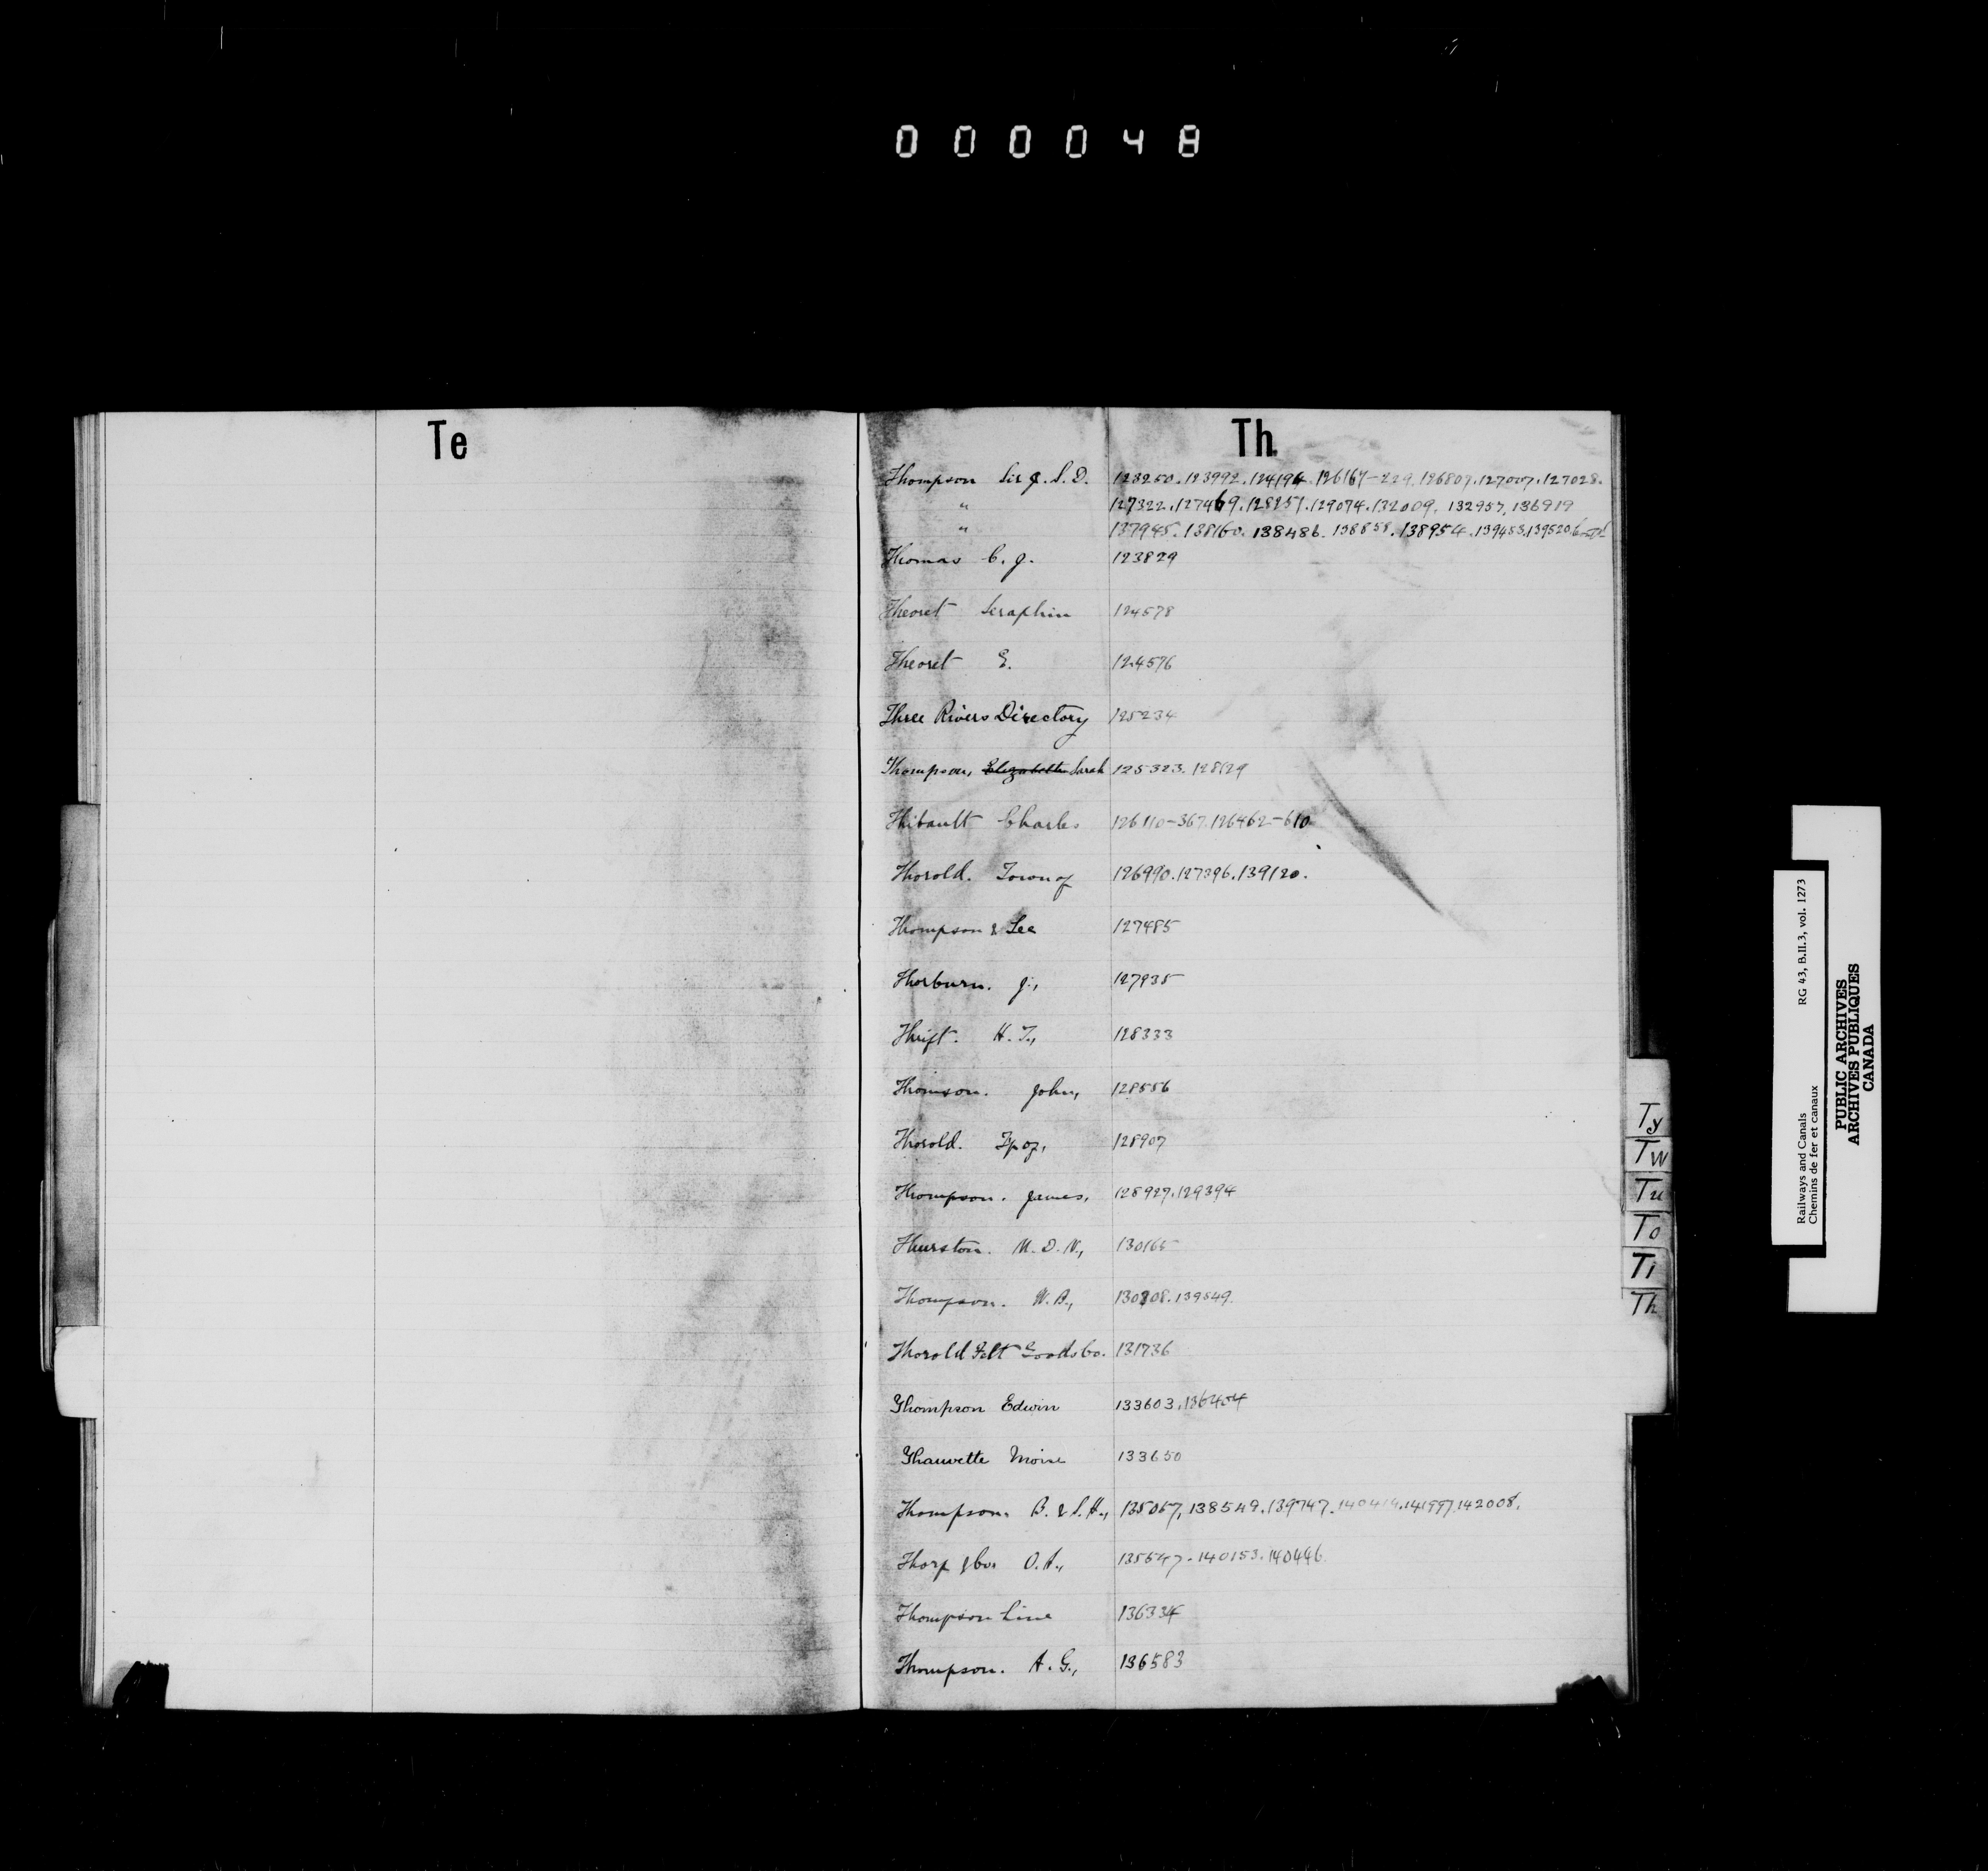 000048
Te
Th.
Thompson Sir J. S. D. 123250. 123992. 124194. 126167-229. 126807. 127007. 127028.
" 127322. 127469. 128251. 129074. 132009. 132957. 136919
" 137945. 138160. 138486. 138858. 138954. 139453. 139520
Thomas C. J. 123829
Theoret Seraphin 124578
Theoret E. 124576
Three Rivers Directory 125234
Thompson, Elizabeth Sarah 125323. 128129
Thibault Charles 126110-367. 126462-610
Thorold. Town of 126990. 127396. 139120.
Thompson & Lee 127485
Thorburn. J., 127935
Thrift. H. T., 128333
Thomson. John, 128556
Thorold. Tp of, 128907
Thompson. James, 128927. 129394
Thurston. M. D. N., 130165
Thompson. W. A., 130808. 139549.
Thorold Felt Goods Co. 131736
Thompson Edwin 133603. 136404
Thauvette Moise 133650
Thompson. B. & S. H., 135067, 138549. 139747. 140414. 141997. 142008.
Thorp & Co. O. A., 135547. 140153. 140446
Thompson Line 136334
Thompson. A. G., 136583
Ty
Tw
Tu
To
Ti
Th
Railways and Canals RG 43, B.II.3, vol. 1273
Chemins de fer et canaux
PUBLIC ARCHIVES
ARCHIVES PUBLIQUES
CANADA